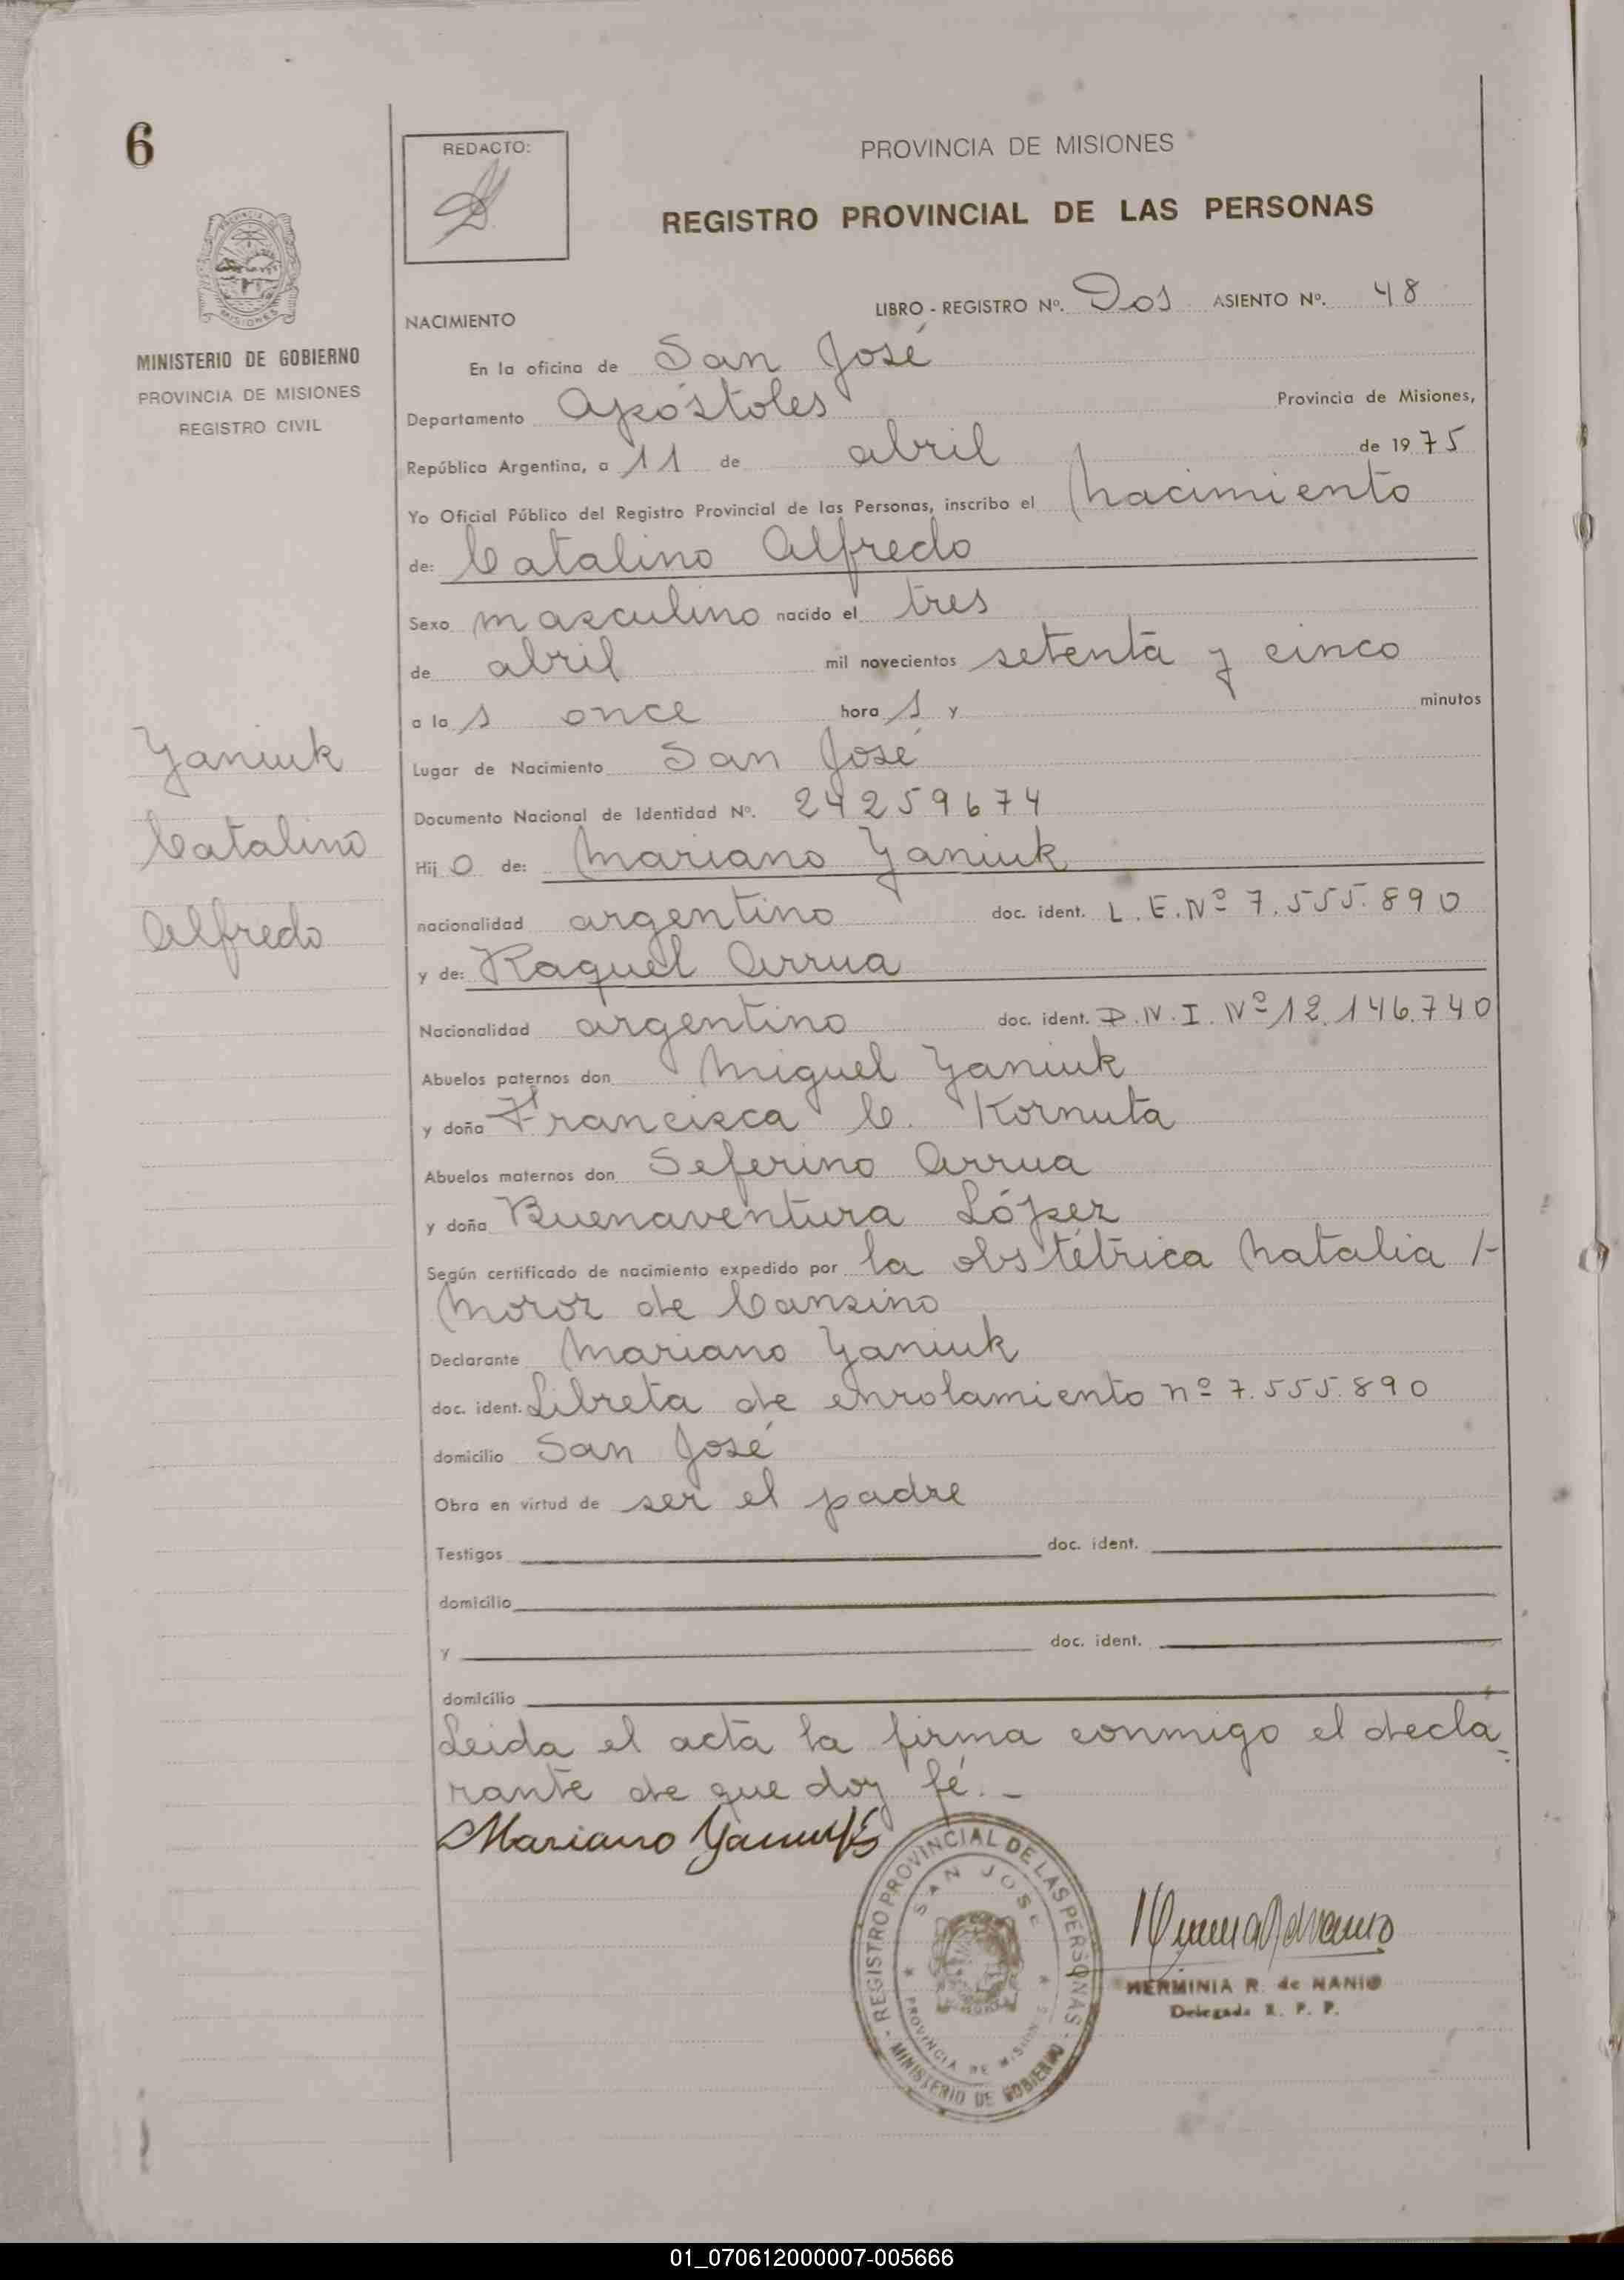 6
REDACTO:
PROVINCIA DE MISIONES
REGISTRO PROVINCIAL DE LAS PERSONAS
PROVINCIA DE MISIONES
MINISTERIO DE GOBIERNO
PROVINCIA DE MISIONES
REGISTRO CIVIL
LIBRO - REGISTRO Nº. Dos ASIENTO Nº. 48
NACIMIENTO
En la oficina de San José
Departamento Apóstoles Provincia de Misiones,
República Argentina, a 11 de abril de 1975
Yo Oficial Público del Registro Provincial de las Personas, inscribo el nacimiento
de: Catalino Alfredo
Sexo masculino nacido el tres
de abril mil novecientos setenta y cinco
a la s once hora s y minutos
Yaniuk
Catalino
Alfredo
Lugar de Nacimiento San José
Documento Nacional de Identidad Nº. 24259674
Hij o de: Mariano Yaniuk
nacionalidad argentino doc. ident. L.E.Nº 7.555.890
y de: Raquel Arrua
Nacionalidad argentino doc. ident. D.N.I. Nº 12.146.740
Abuelos paternos don Miguel Yaniuk
y doña Francisca C. Kornuta
Abuelos maternos don Seferino Arrua
y doña Buenaventura López
Según certificado de nacimiento expedido por la obstétrica Natalia
Moroz de Cansino
Declarante Mariano Yaniuk
doc. ident. Libreta de enrolamiento nº 7.555.890
domicilio San José
Obra en virtud de ser el padre
Testigos doc. ident.
domicilio
y doc. ident.
domicilio
Leida el acta la firma conmigo el decla
rante de que doy fé.-
Mariano Yaniuk
- REGISTRO PROVINCIAL DE LAS PERSONAS -
MINISTERIO DE GOBIERNO
SAN JOSE
PROVINCIA DE MISIONES
HERMINIA R. de NANIO
Delegada R. P. P.
01_070612000007-005666